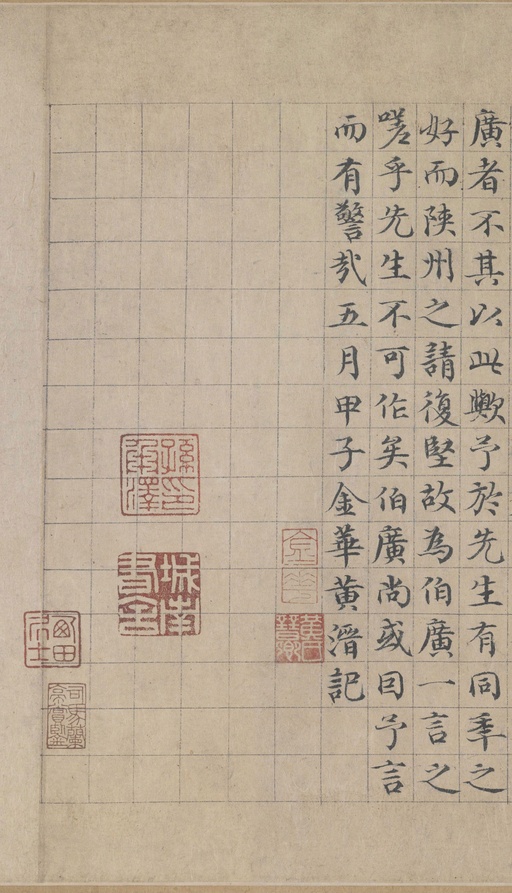 廣者不其以此歟予於先生有同年之
好而陝州之請復堅故為伯廣一言之
嗟乎先生不可作矣伯廣尚或因予言
而有警哉五月甲子金華黃溍記
金華
孫印承澤
城南書舍